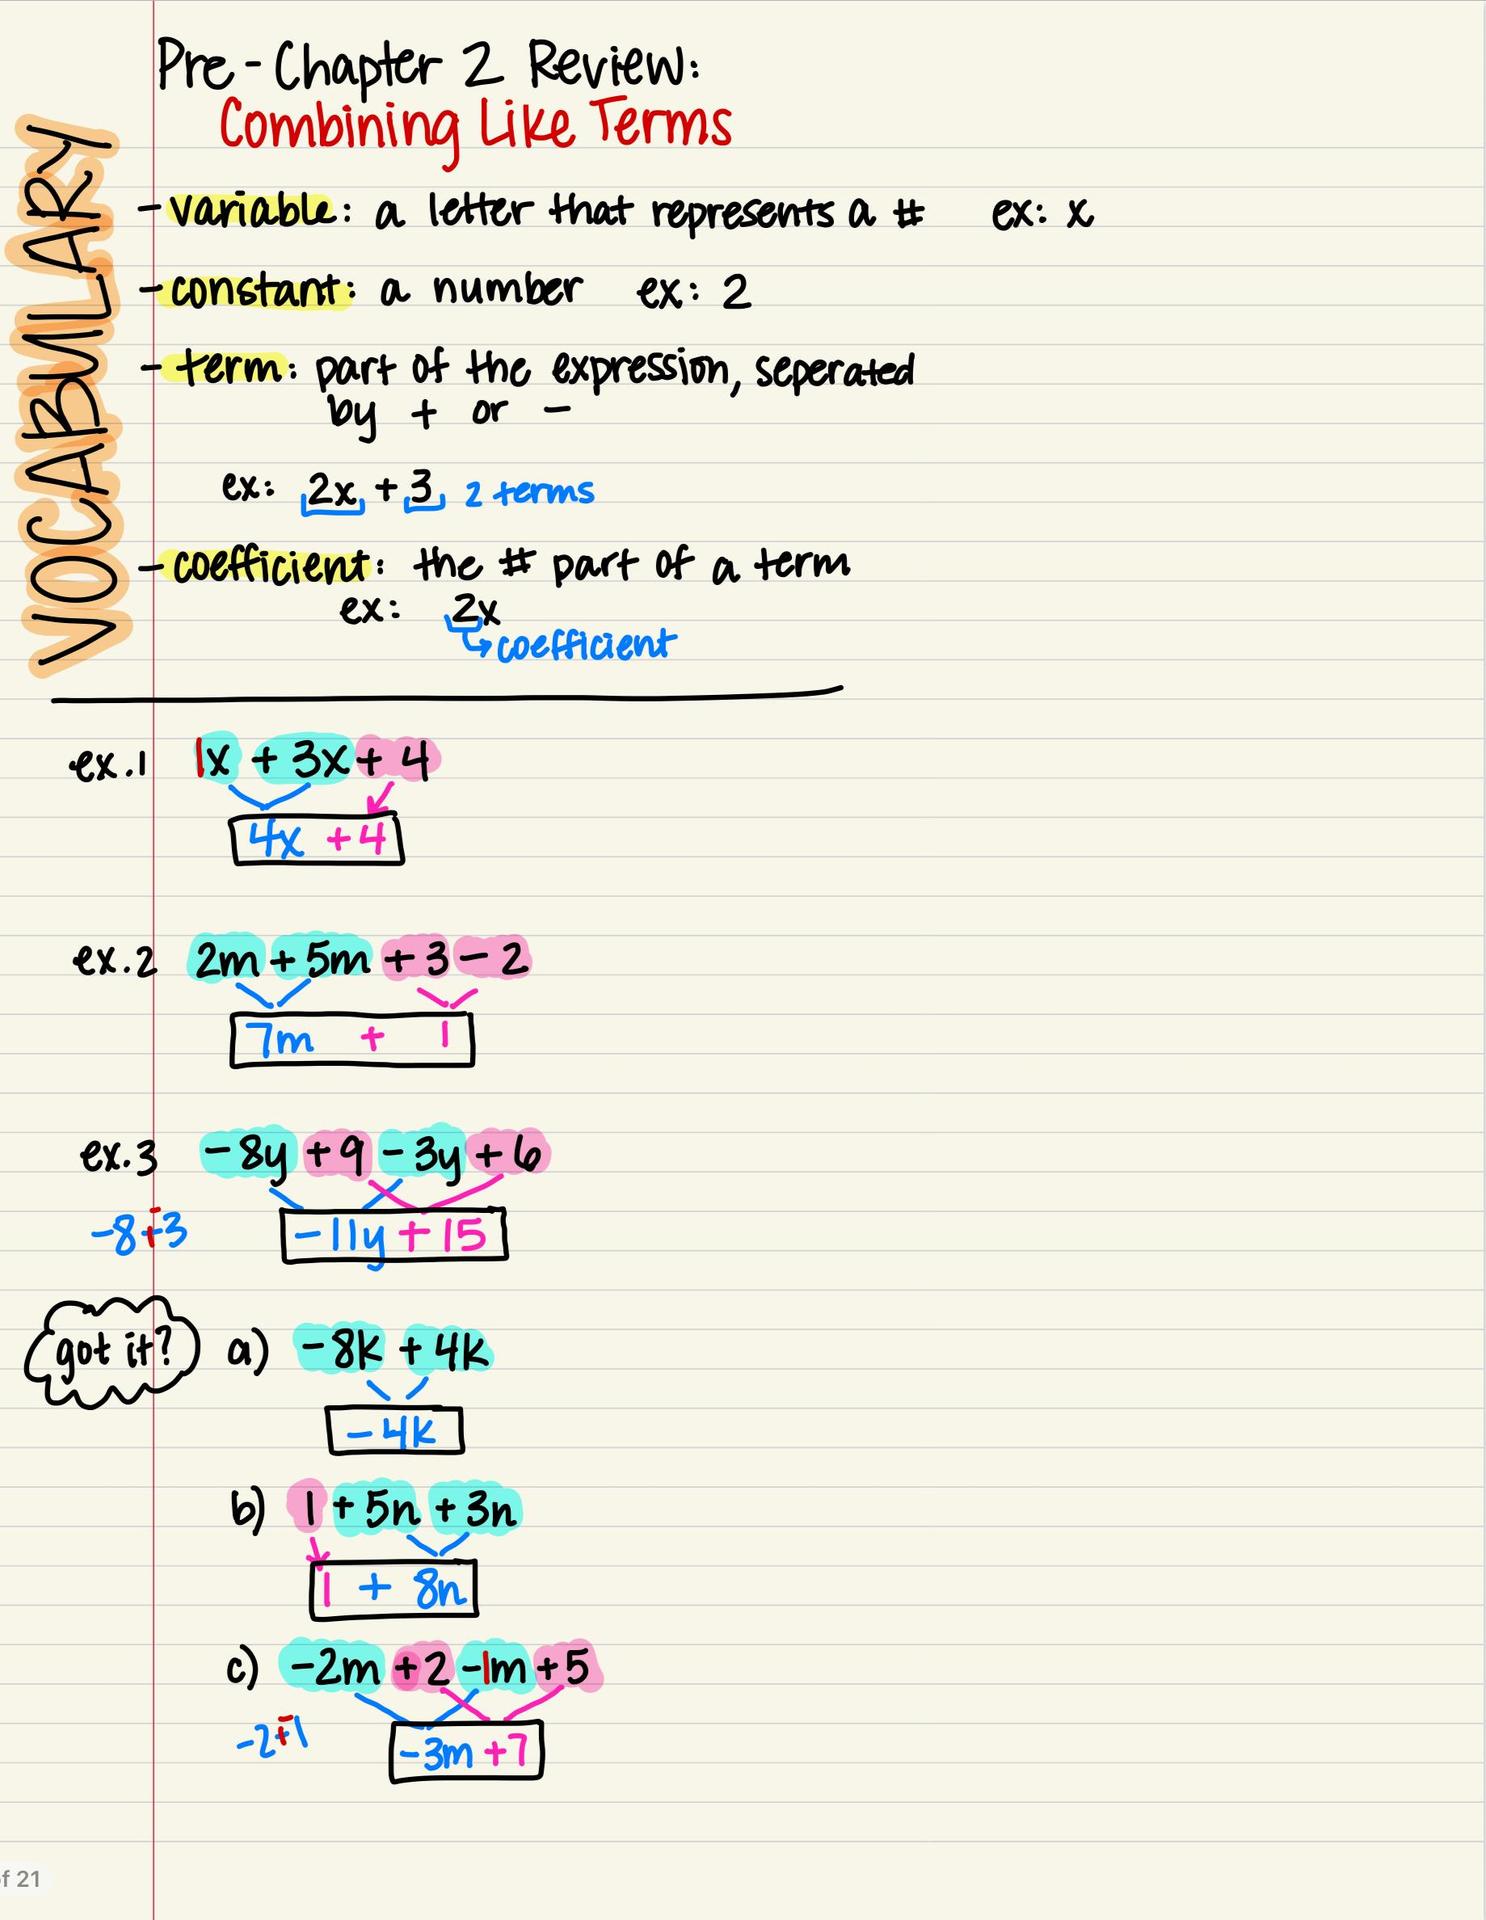 Pre-Chapter 2 Review:
Combining Like Terms
VOCABULARY
- variable: a letter that represents a # ex: x
- constant: a number ex: 2
- term: part of the expression, seperated
by + or -
ex: 2x + 3 2 terms
- coefficient: the # part of a term
ex: 2x
coefficient
ex.1 1x + 3x + 4
4x + 4
ex.2 2m + 5m + 3 - 2
7m + 1
ex.3 -8y + 9 - 3y + 6
-8 + -3
-11y + 15
got it? a) -8k + 4k
-4k
b) 1 + 5n + 3n
1 + 8n
c) -2m + 2 - 1m + 5
-2 + -1
-3m + 7
of 21